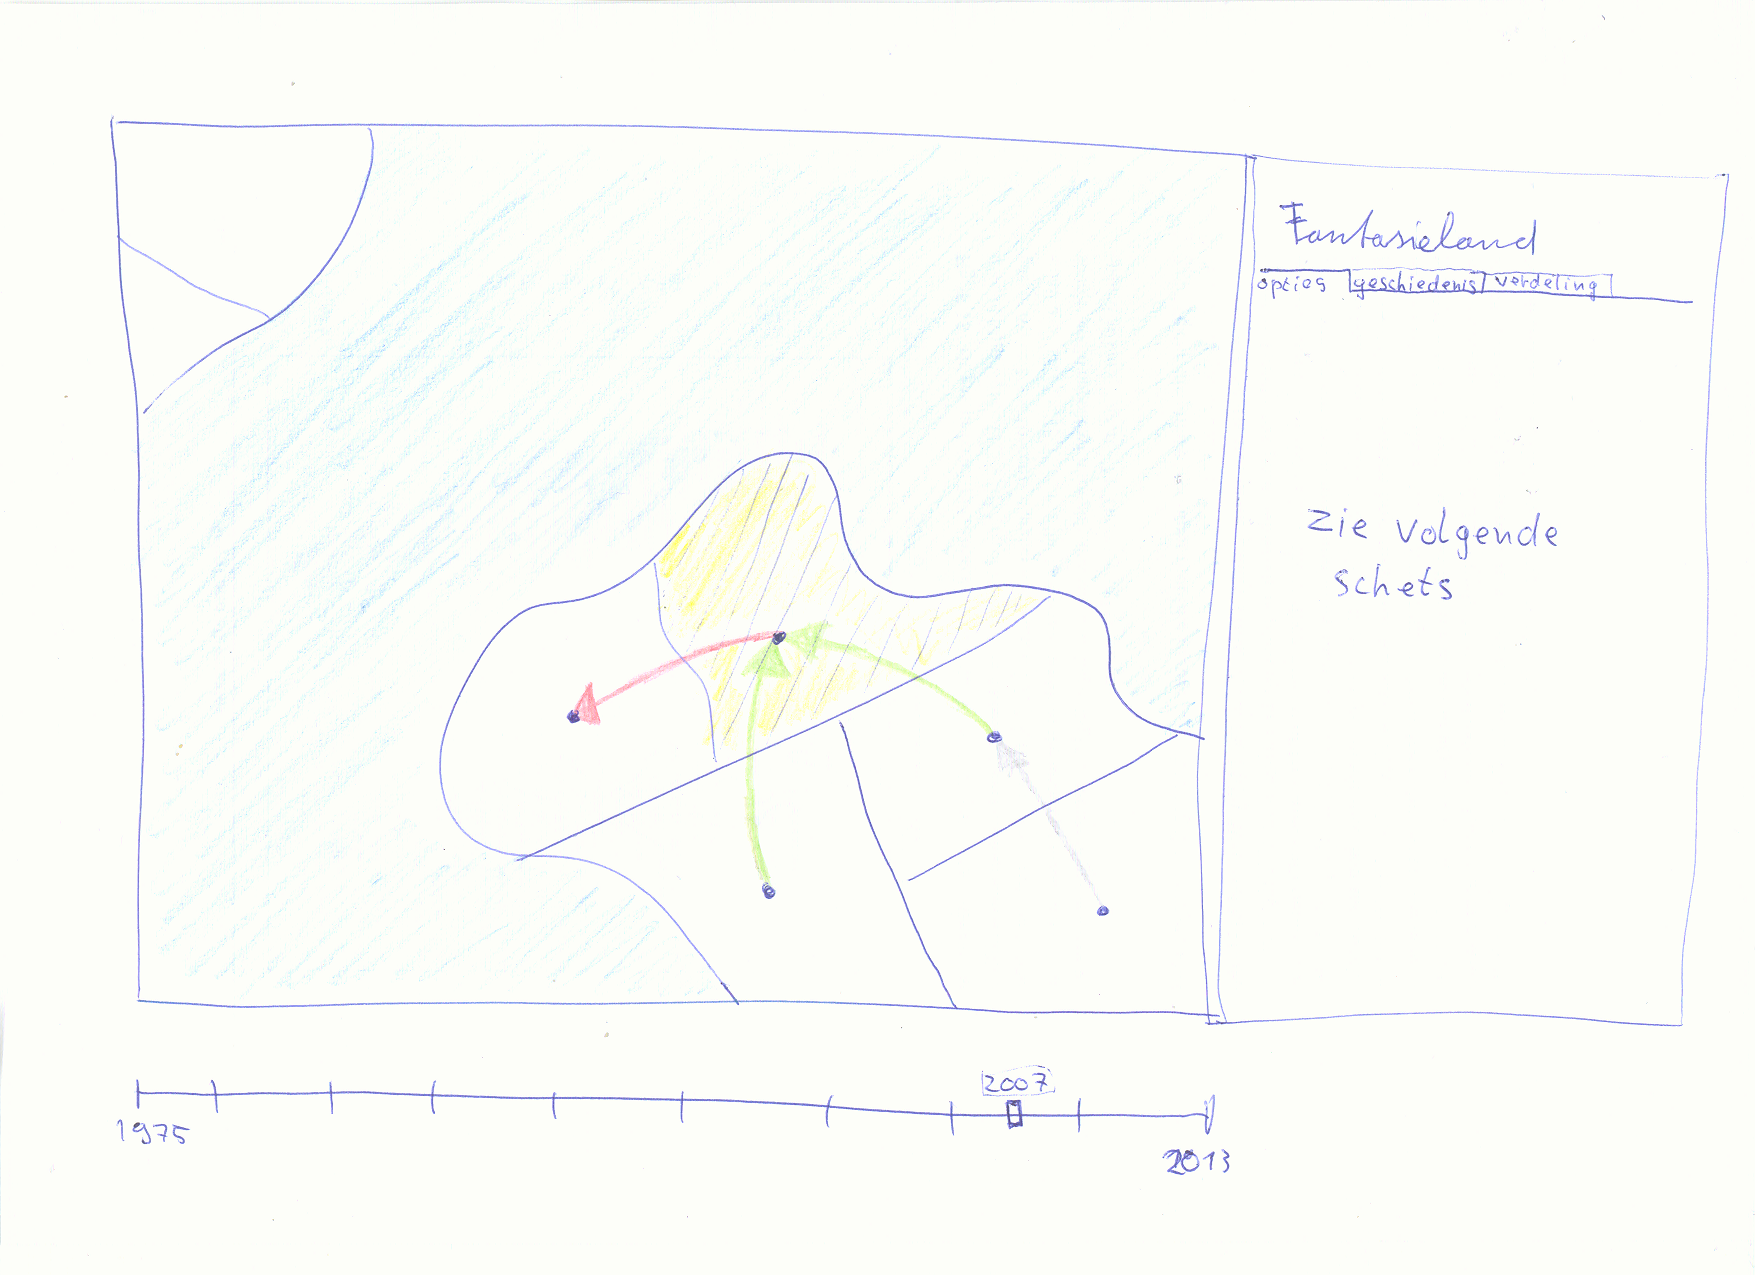 Fantasieland
opties geschiedenis verdeling
Zie volgende
schets
2007
1975
2013